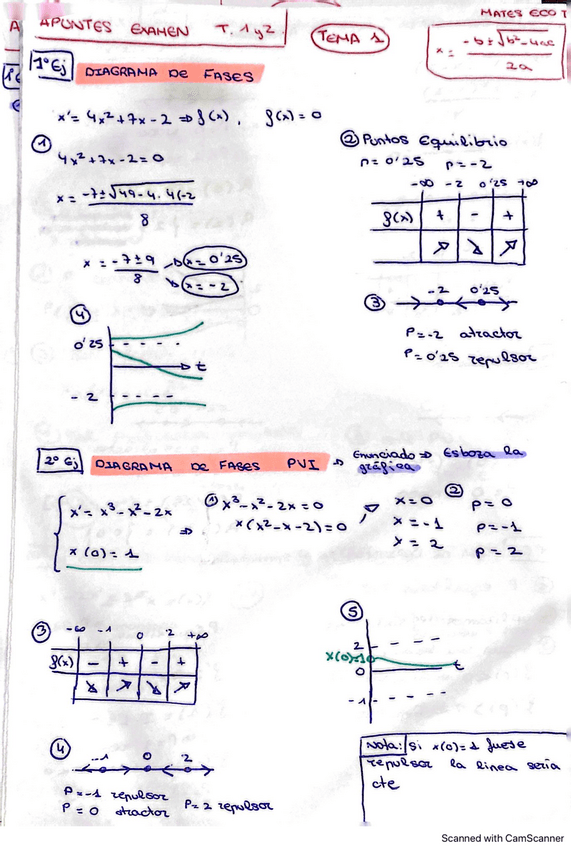 MATES ECO T
A
APUNTES EXAMEN T. 1 y 2.
TEMA 1
x = -b ± √b² - 4ac / 2a
1º Ej DIAGRAMA DE FASES
x' = 4x² + 7x - 2 ⇒ f(x), f(x) = 0
①
4x² + 7x - 2 = 0
x = -7 ± √49 - 4. 4(-2 / 8
x = -7 ± 9 / 8 → x = 0'25
→ x = -2
② Puntos Equilibrio
p = 0'25 p = -2
-∞ -2 0'25 +∞
f(x) + - +
↗ ↘ ↗
③ -2 0'25
P = -2 atractor
P = 0'25 repulsor
④
0'25
t
-2
2º Ej DIAGRAMA DE FASES PVI → Enunciado ⇒ Esboza la
gráfica
x' = x³ - x² - 2x
x(0) = 1
⇒
① x³ - x² - 2x = 0
x(x² - x - 2) = 0
x = 0
x = -1
x = 2
②
p = 0
p = -1
p = 2
③ -∞ -1 0 2 +∞
f(x) - + - +
↘ ↗ ↘ ↗
④ -1 0 2
P = -1 repulsor
P = 0 atractor P = 2 repulsor
⑤
2
x(0)=1
0 t
-1
Nota: Si x(0) = 1 fuese
repulsor la línea sería
cte
Scanned with CamScanner